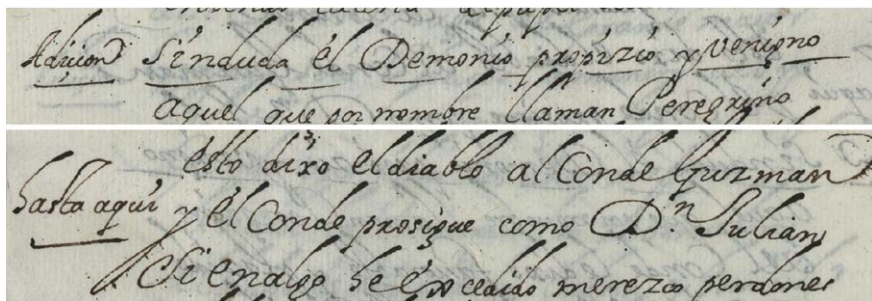 Adicion Sinduda el Demonio propizio y venigno
aquel que por nombre llaman Peregrino
esto dixo el diablo al Conde Guzman
hasta aqui y el Conde prosigue como Dn. Julian
Si en algo he excedido merezco perdones